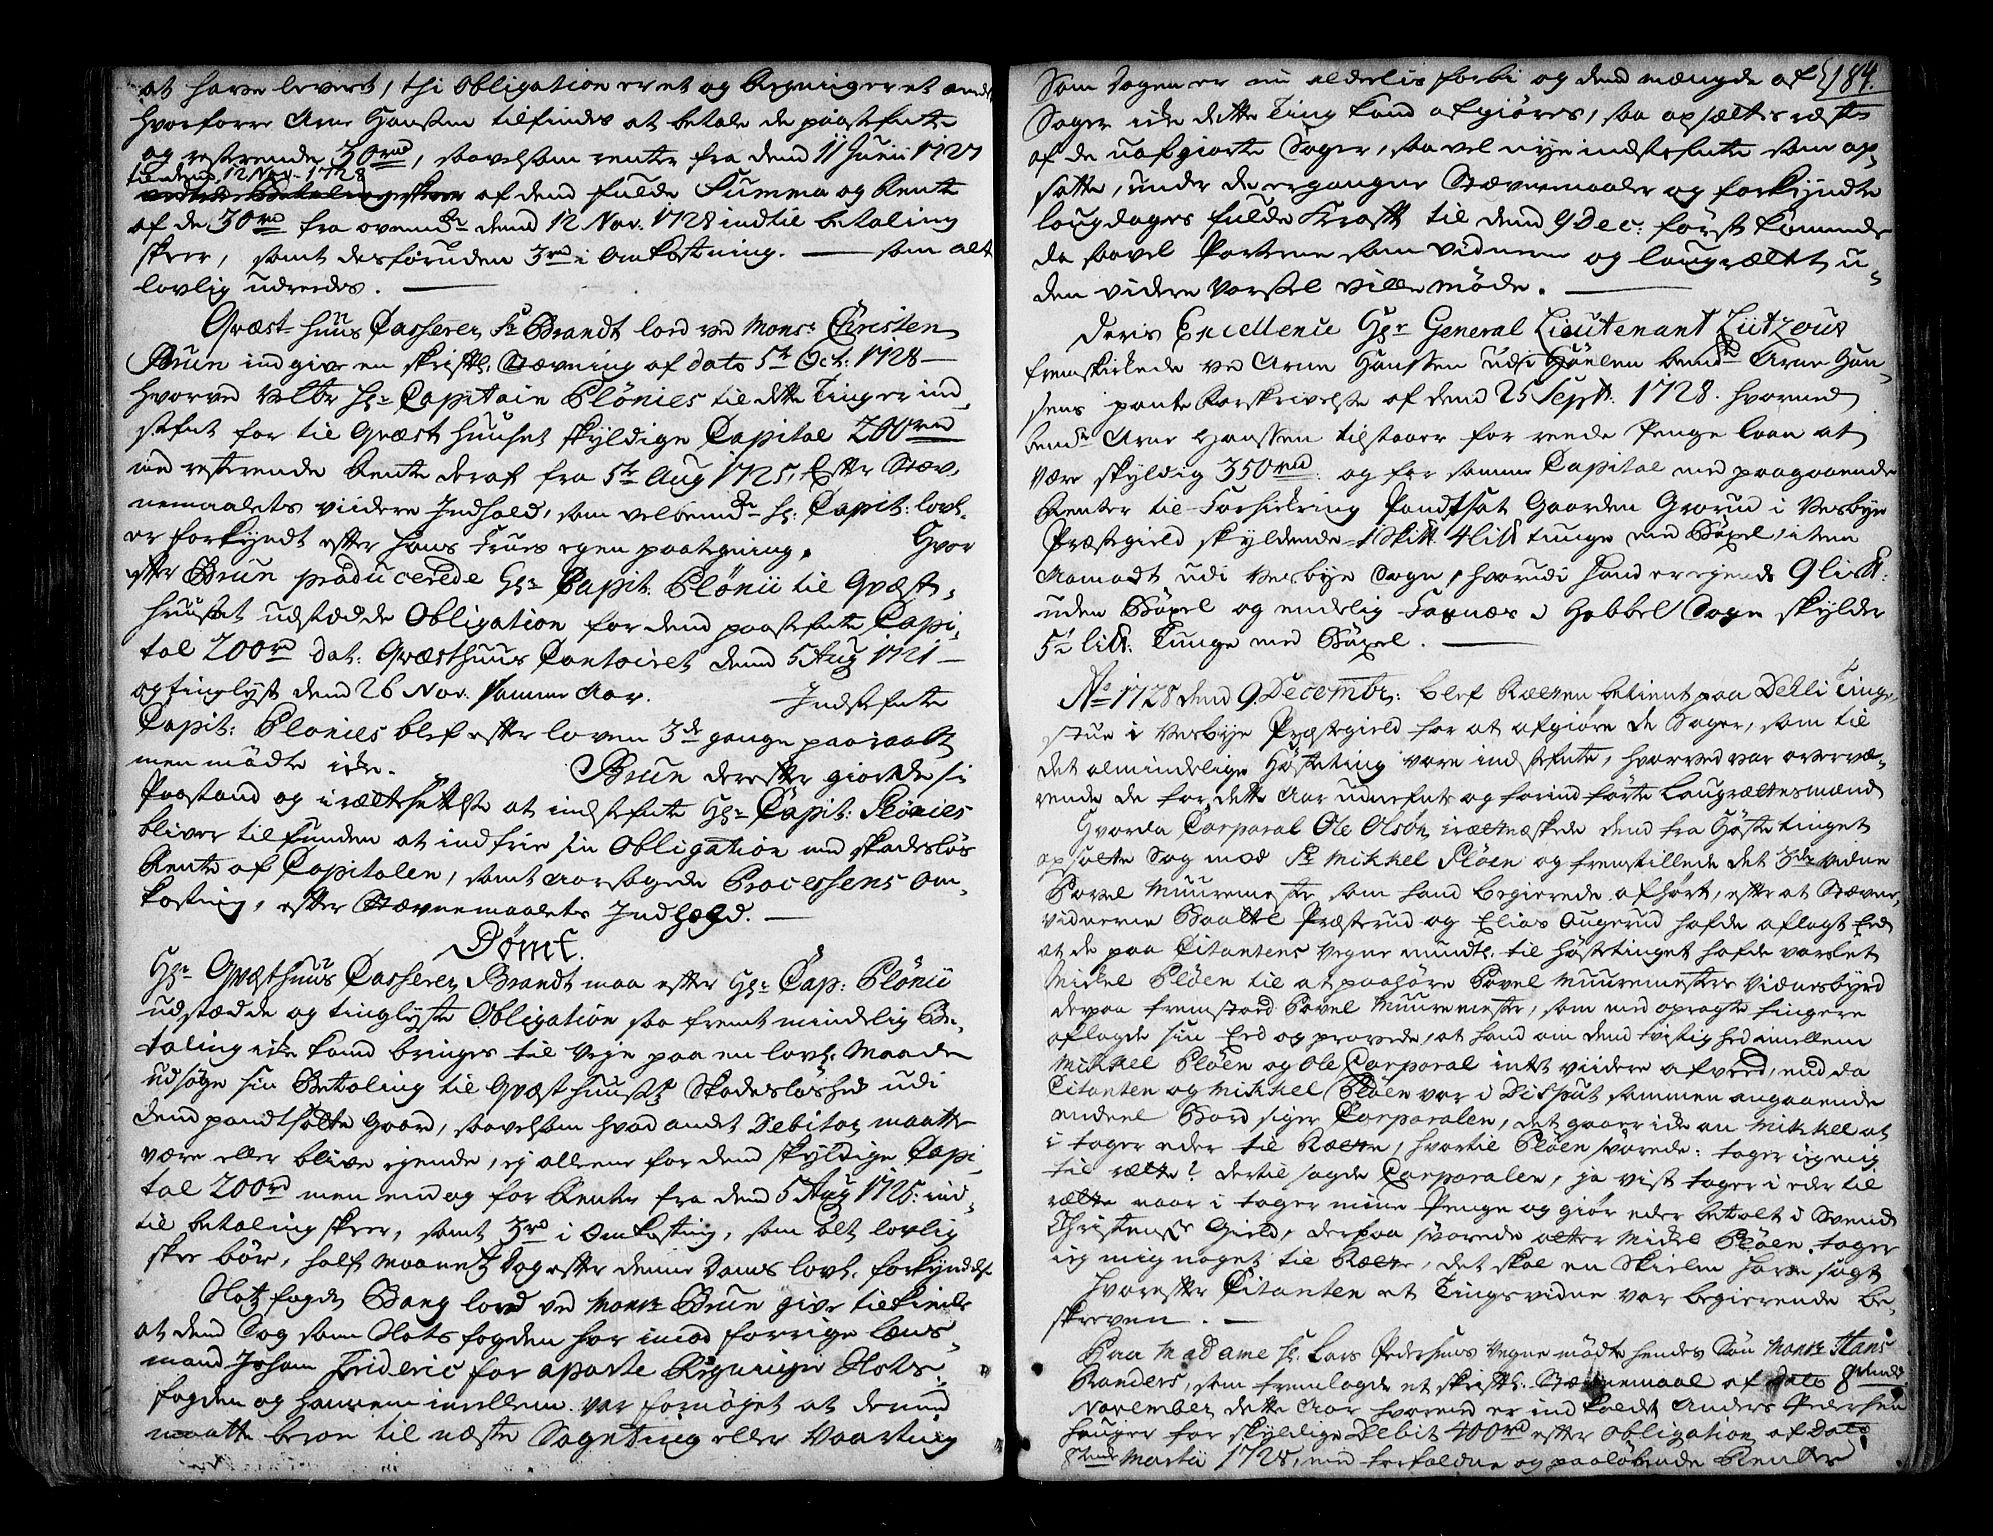 at have levert, thi Obligation er et og Regninger et andet
hvorfore Arne Hanssen tilfindes at betale de paastefnte
og resterende 30 rd, saavelsom renter fra dend 11 Junii 1727
til dend 12 Nov. 1728
af dend fulde Summa og Rente
af de 30 rd fra ovenbem.te dend 12 Nov. 1728 indtil betaling
skeer, samt desforuden 3 rd i Omkostning. — som alt
lovlig udreedes. —
Qvæsthuus Casserer Sr Brandt lod ved Monsr Christen
Bruun indgive en skriftl. Stævning af dato 5te Oct: 1728 —
hvorved Velbr Hr Capitain Plönies til dette Ting er ind-
stefnt for til Qvæsthuuset skyldige Capital 200 rd
med resterende Rente deraf fra 5te Aug 1725, Efter Stæv-
nemaalets viidere Indhold, som velbemte Hr: Capit: lovl.
er forkyndt efter hans Frues egen paategning. Hvor
efter Bruun producerede Hr Capit. Plönii til Qvæst-
huuset udstædde Obligation for dend paastefnte Capi-
tal 200 rd dat: Qvæsthuus Contoiret dend 5 Aug 1721 —
og tinglyst dend 26 Nov. samme Aar. Indstefnte
Capit: Plönies blef efter loven 3de gange paaraabt
men mödte icke. Bruun derefter giorde sin
Paastand og irættesættelse at indstefnte Hr Capit: Plönies
bliver tilfunden at indfrie sin Obligation med skadeslös
Rente af Capitalen, samt aarsagede Processens Om-
kostning, efter Stævnemaalets Indhold. —
Dömt.
Hr Qvæsthuus Casserer Brandt maa efter Hr Cap: Plönii
udstædde og tinglyste Obligation saa fremt mindelig Be-
taling icke kand bringes til veje paa en lovl: Maade
udsöge sin Betaling til Qvæsthuusets Skadeslöshed udi
dend pandtsatte Gaard, saavelsom hvad andet Debitor maatte
være eller blive ejende, ej alleene for dend skyldige Capi-
tal 200 rd men end og for Renter fra dend 5 Aug 1725: ind-
til betaling skeer, samt 3 rd i Omkostning, som alt lovlig
skee bör, half maanets dag efter denne Doms lovl. forkyndelse
Slots fogden Bang lod ved Monsr Bruun give tilkiende
at dend Sag som Slots fogden har imod forrige Lens-
mand Johan Frideric for aparte Regninger Slots-
fogden og hannem imellem var fornöyet at denne
maatte beroe til næste Sageting eller Vaarting
184.
Som dagen er nu aldelis forbi og dend mængde af
Sager icke dette Ting kand afgiöres, saa opsættes ræsten
af de uafgiorte Sager, saavel nye indstefnte som op-
satte, under de ergangne Stævnemaaler og forkyndte
laugdages fulde Kraft til dend 9 Dec: först kommende
da saavel Parterne som vidnerne og laugrættet u-
den videre Varsel ville möde. —
Deris Excellence Hr General Lieutenant Lützous
fremskickede ved Arne Hanssen udi Höelen bemte Arne Han-
sens pante Forskrivelse af dend 25 Sept. 1728. hvorved
bemte Arne Hanssen tilstaaer for reede Penge laan at
være skyldig 350 rd. og for samme Capital med paagaaende
Renter til Forsickring Pandtsat Gaarden Grorud i Vesbye
Præstegield skyldende 1 Skit 4 lisl tunge med Böxel, item
Aamodt udi Vesbye Sogn, hvorudi hand er ejende 9 lisl:
uden Böxel og endelig Fagnæs i Hobbel Sogn skylder
5½ lisl: Tunge med Böxel. —
No 1728 dend 9. Decembr: blef Retten betient paa Dehli Tinge-
stue i Vesbye Præstegield for at afgiöre de Sager, som til
det almindelige Hösteting vare indstefnte, hvorved var overvæ-
rende de for dette Aar udnefnte og forindförte Laugrettesmænd
Hvorda Corporal Ole Olsön irætteæskede dend fra Höste tinget
opsatte Sag mod Sr Mikkel Plöen og fremstillede det 3die vidne
Povel Muuremester som hand begierede afhört, efter at Stævne-
vidnerne Baltzel Præsterud og Elias Augerud hafde aflagt Eed
at de paa Citantens Vegne mundtl: til höstetinget hafde varslet
Mickel Plöen til at paahöre Povel Muuremesters Vidnesbyrd
derpaa fremstoed Povel Muuremester, som med opragte fingere
aflagde sin Eed og provede, at hand om dend tvistighed imellem
Mikkel Plöen og Ole Corporal intet viidere afveed, end da
Citanten og Mikkel Plöen var i Disput sammen angaaende
endeel Bord siger Corporalen, det gaaer icke an Mikkel at
i tager eder til Rætte, hvortil Plöen svarede: tager ieg mig
til rætte? dertil sagde Corporalen, ja vist tager i eder til
rætte naar i tager mine Penge og giör eder betalt i Svend
Christensens Gield, derpaa svarede atter Mickel Plöen, tager
ieg mig noget til Rætte, det skal en Skielm have sagt
hvorefter Citanten et Tingsvidne var begierende be-
skreven. —
Paa Madame Sl. Lars Pedersens Vegne mödte hendes Sön Monsr Hans
Randers, som fremlagde et skriftl: Stævnemaal af dato 8tende
November dette Aar hvorved er indkaldt Anders Pedersen
Hauger for skyldige Debit 400 rd efter Obligation af dato
8tende Martii 1728, med forfaldne og paalöbende Renter